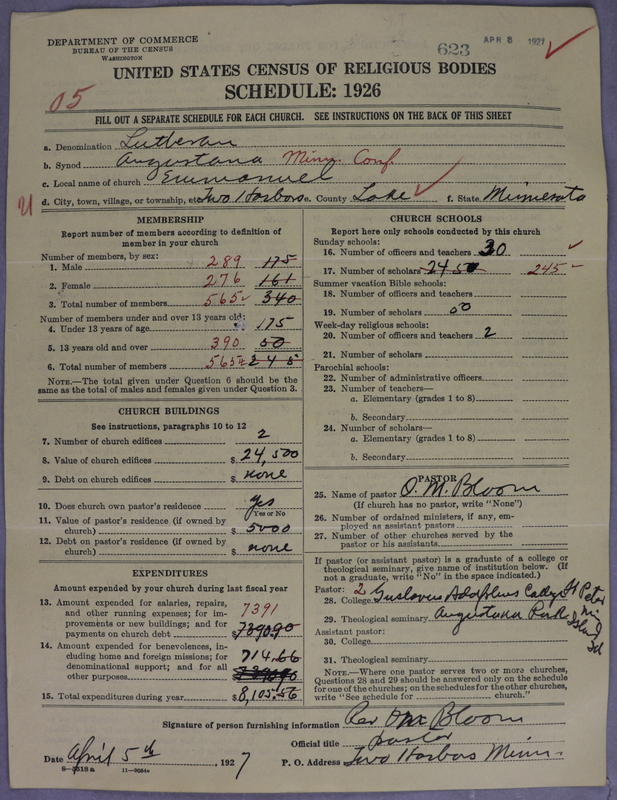 DEPARTMENT OF COMMERCE
BUREAU OF THE CENSUS
WASHINGTON
623 APR 8 1927
UNITED STATES CENSUS OF RELIGIOUS BODIES
SCHEDULE: 1926
05
FILL OUT A SEPARATE SCHEDULE FOR EACH CHURCH. SEE INSTRUCTIONS ON THE BACK OF THIS SHEET
a. Denomination Lutheran
b. Synod Augustana Minn. Conf.
c. Local name of church Emmanuel
d. City, town, village, or township, etc. Two Harbors e. County Lake f. State Minnesota
MEMBERSHIP
Report number of members according to definition of
member in your church
Number of members, by sex:
1. Male 289 175
2. Female 276 161
3. Total number of members 565 340
Number of members under and over 13 years old:
4. Under 13 years of age 175
5. 13 years old and over 390 50
6. Total number of members 565 245
NOTE.—The total given under Question 6 should be the
same as the total of males and females given under Question 3.
CHURCH BUILDINGS
See instructions, paragraphs 10 to 12
7. Number of church edifices 2
8. Value of church edifices $ 24,500
9. Debt on church edifices $ none
10. Does church own pastor's residence? yes
Yes or No
11. Value of pastor's residence (if owned by
church) $ 5000
12. Debt on pastor's residence (if owned by
church) $ none
EXPENDITURES
Amount expended by your church during last fiscal year
13. Amount expended for salaries, repairs,
and other running expenses; for im-
provements or new buildings; and for
payments on church debt $ 7391 7390.90
14. Amount expended for benevolences, in-
cluding home and foreign missions; for
denominational support; and for all
other purposes 714.66
15. Total expenditures during year $ 8,105.56
CHURCH SCHOOLS
Report here only schools conducted by this church
Sunday schools:
16. Number of officers and teachers 30
17. Number of scholars 245
Summer vacation Bible schools:
18. Number of officers and teachers
19. Number of scholars
Week-day religious schools:
20. Number of officers and teachers 2
21. Number of scholars
Parochial schools:
22. Number of administrative officers
23. Number of teachers—
a. Elementary (grades 1 to 8)
b. Secondary
24. Number of scholars—
a. Elementary (grades 1 to 8)
b. Secondary
PASTOR
25. Name of pastor O. M. Bloom
(If church has no pastor, write "None")
26. Number of ordained ministers, if any, em-
ployed as assistant pastors
27. Number of other churches served by the
pastor or his assistants
If pastor (or assistant pastor) is a graduate of a college or
theological seminary, give name of institution below. (If
not a graduate, write "No" in the space indicated.)
Pastor: 2
28. College Gustavus Adolphus College St Peter
29. Theological seminary Augustana Rock Island
Assistant pastor:
30. College
31. Theological seminary
NOTE.—Where one pastor serves two or more churches,
Questions 28 and 29 should be answered only on the schedule
for one of the churches; on the schedules for the other churches,
write "See schedule for church."
Signature of person furnishing information Rev O M Bloom
Official title pastor
Date April 5th, 1927 P. O. Address Two Harbors Minn.
8-5518a 11-9084